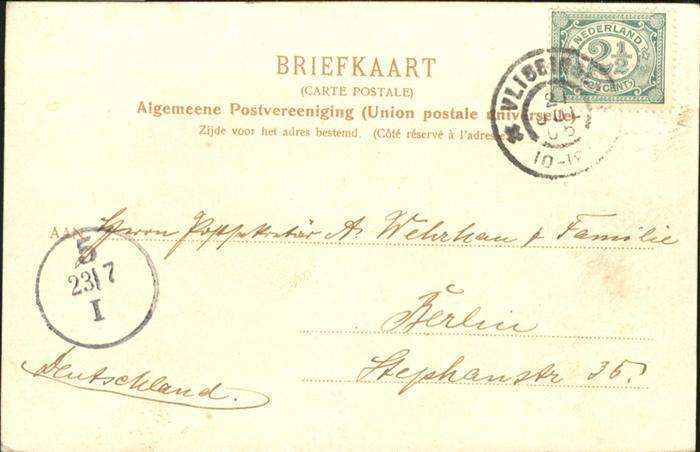 NEDERLAND
2½
(2½ CENT)
BRIEFKAART
(CARTE POSTALE)
Algemeene Postvereeniging (Union postale universelle)
Zijde voor het adres bestemd. (Côté réservé à l'adresse)
10-12
AAN Herrn Postsekretär A. Wehrhan & Familie
5
23/7
I
Berlin
Stephanstr 35.
Deutschland.